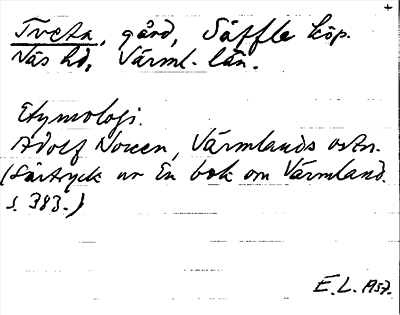 Tveta, gård, Säffle köp.
Näs hd, Värml. län.
Etymologi.
Adolf Noreen, Värmlands ortn.
(Särtryck ur En bok om Värmland.
s. 383.)
E.L. 1957.